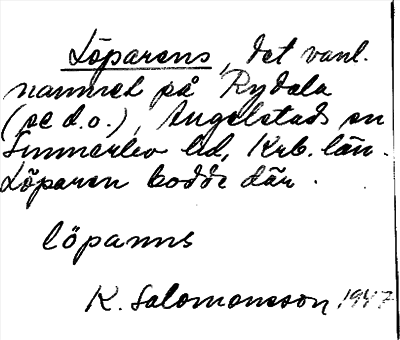 Löparens, det vanl.
namnet på Rydala
(se d.o.), Angelstads sn
Sunnerbo hd, Krb. län.
Löparen bodde där.
löparens
K. Salomonsson 1947